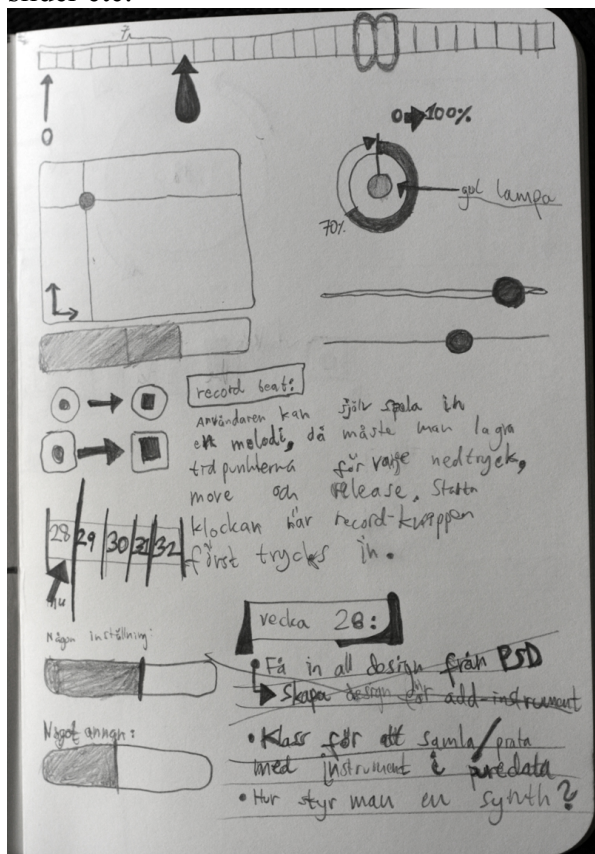 slider etc.
0
0 100%
gul lampa
70%
record beat:
Användaren kan själv spela in
en melodi, då måste man lagra
tidpunkterna för varje nedtryck,
move och release. Starta
klockan när record-knappen
först trycks in.
28 29 30 31 32
nu
Någon inställning:
Något annan:
vecka 28:
• Få in all design från PSD
Skapa design för add-instrument
• Klass för att samla/prata
med instrument i puredata
• Hur styr man en synth?